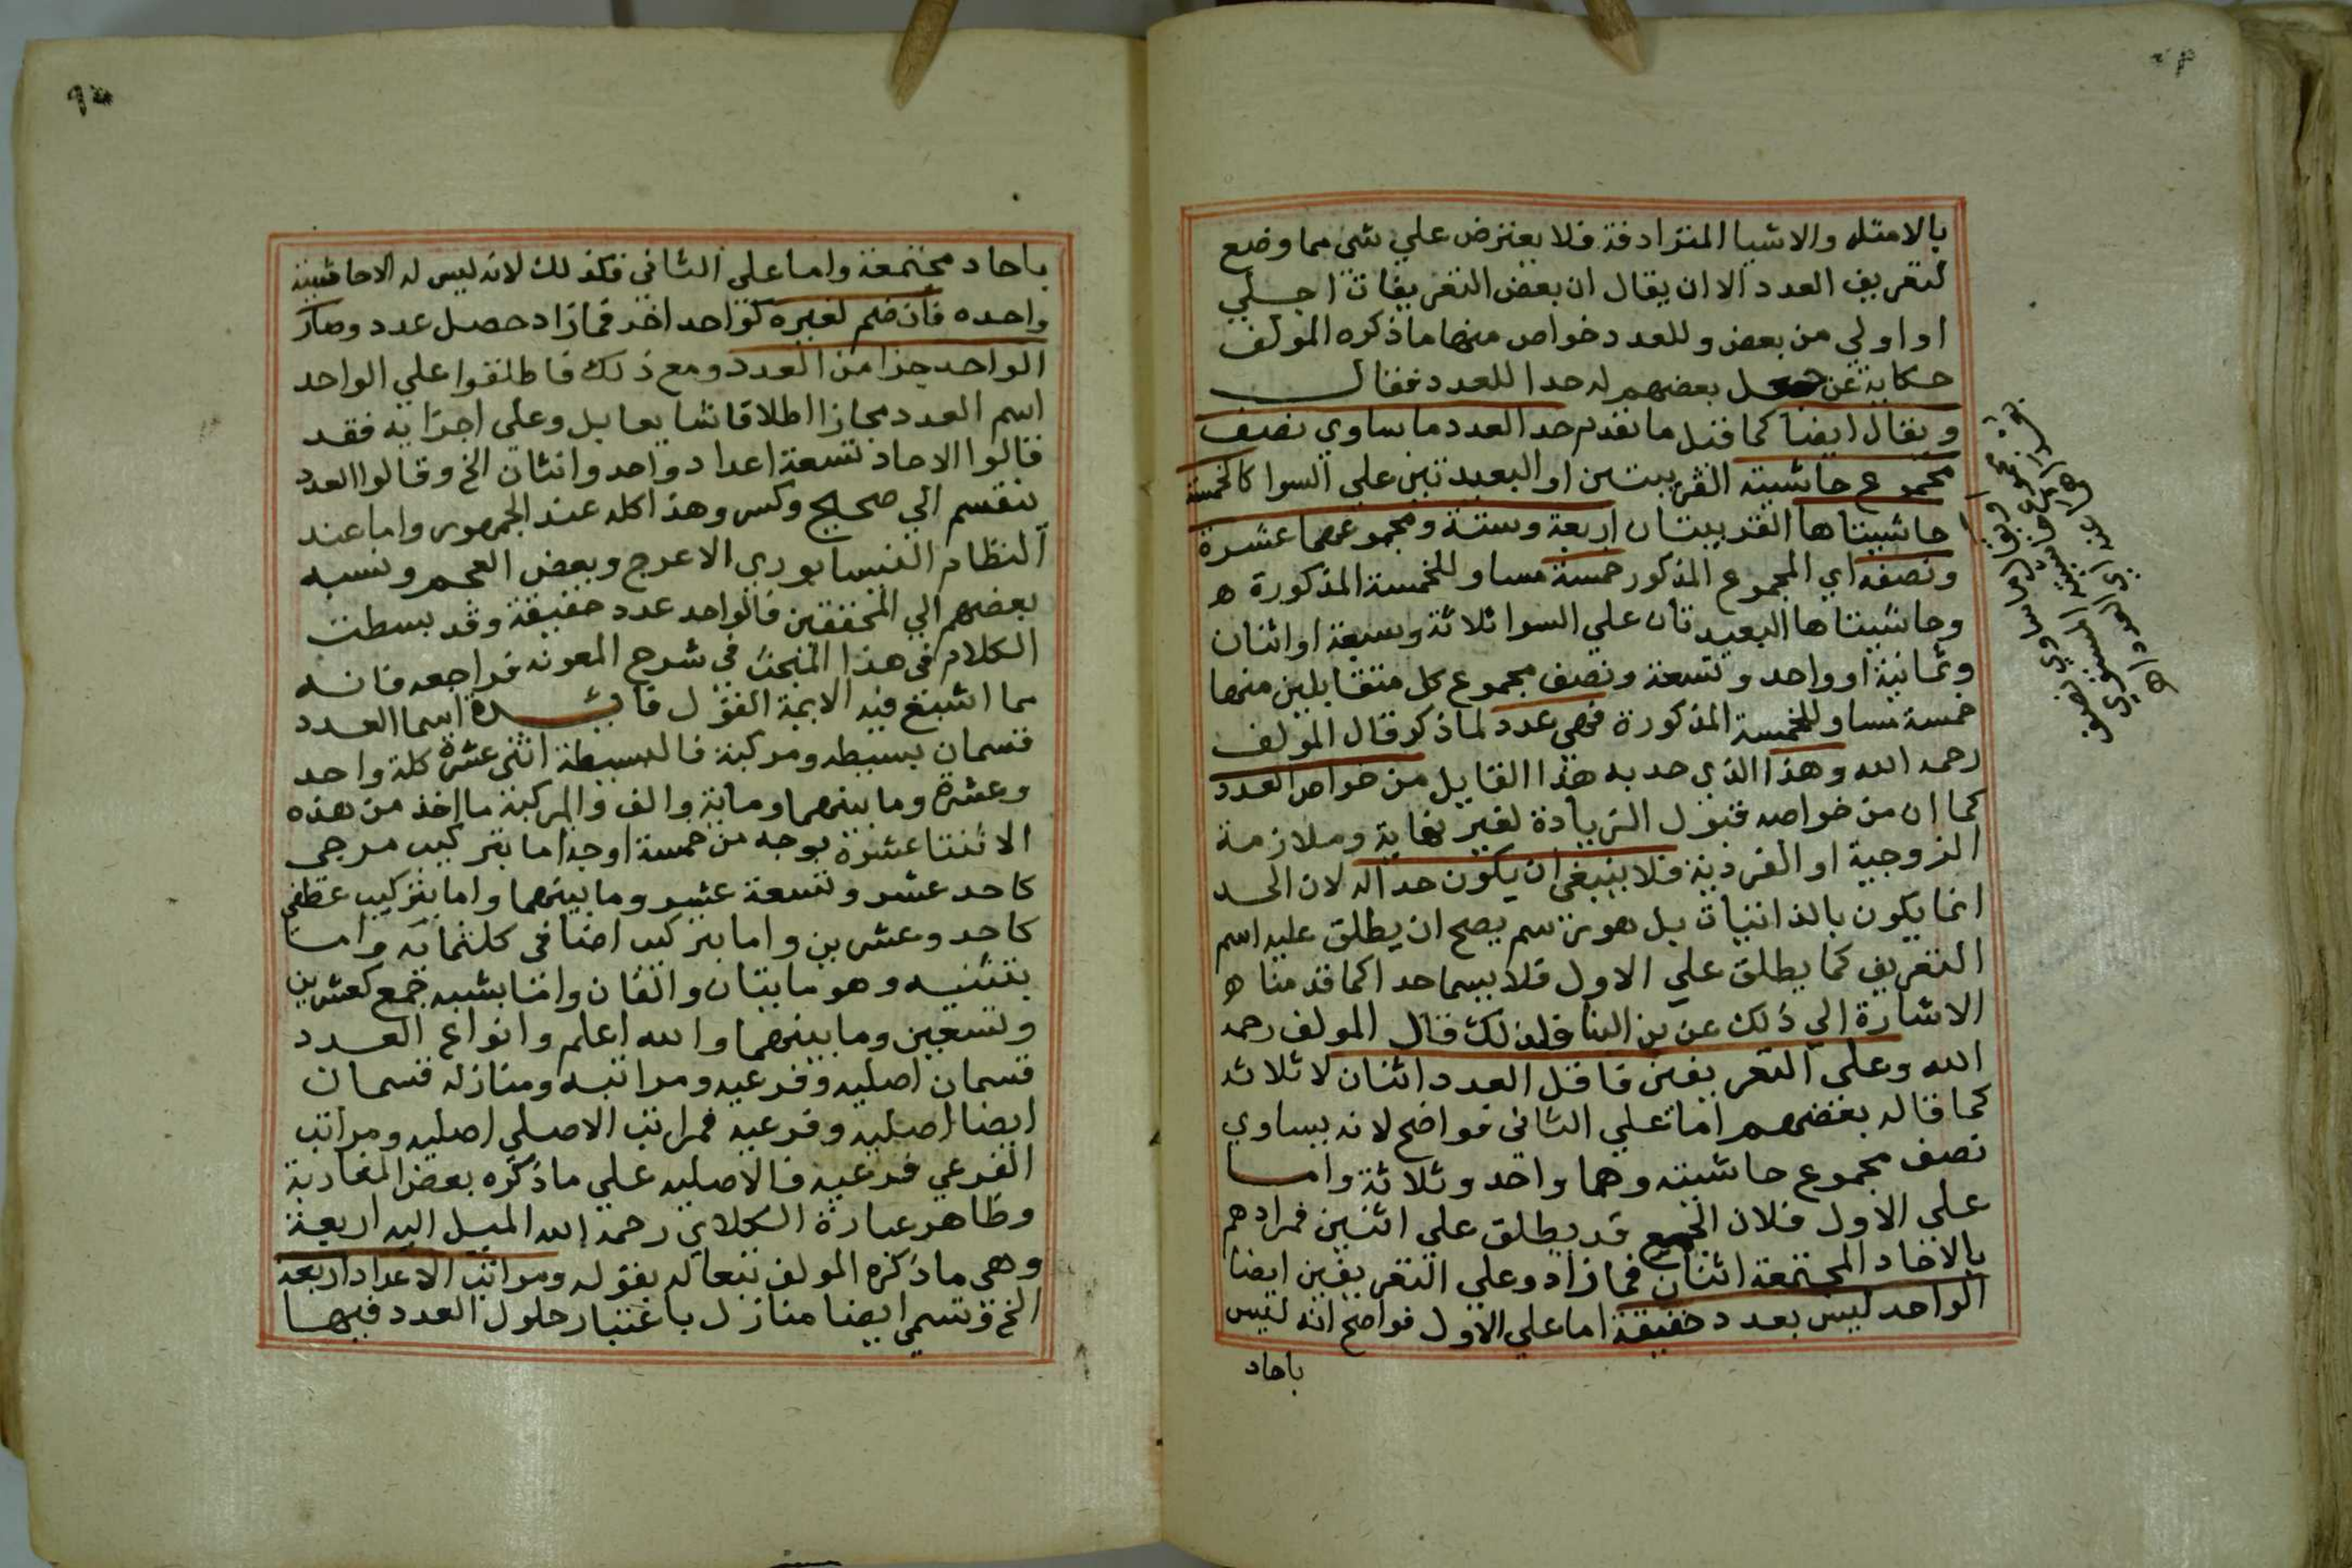 بالامثله والاشيا المترادفة فلا يعترض علي شي مما وضع
لتعريف العدد الا ان يقال ان بعض التعريفات اجلي
او اولي من بعض وللعدد خواص منها ما ذكره المولف
حكاية عن جعل بعضهم له حدا للعدد فقال
ويقال ايضا كما قبل ما تقدم حد العدد ما ساوي نصف
مجموع حاشيته القريبتين او البعيدتين علي السوا كالخمسة
حاشيتاها القريبتان اربعة وستة ومجموعهما عشرة
ونصفه اي المجموع المذكور خمسة مساو للخمسة المذكورة ه
وحاشيتاها البعيدتان علي السوا ثلاثة وسبعة او اثنان
وثمانية او واحد وتسعة ونصف مجموع كل متقابلين منها
خمسة مساو للخمسة المذكورة فهي عدد لما ذكر قال المولف
رحمه الله وهذا الذي حد به هذا القايل من خواص العدد
كما ان من خواصه قبول الزيادة لغير نهاية وملازمة
الزوجية او الفردية فلا ينبغي ان يكون حدا له لان الحد
انما يكون بالذاتيات بل هو رسم يصح ان يطلق عليه اسم
التعريف كما يطلق علي الاول فلا يسما حدا كما قدمنا ه
الاشارة الي ذلك عن بن البنا فلذلك قال المولف رحمه
الله وعلي التعريفين فاقل العدد اثنان لا ثلاثه
كما قاله بعضهم اما علي الثاني فواضح لانه يساوي
نصف مجموع حاشيته وهما واحد وثلاثة واما
علي الاول فلان الجمع قد يطلق علي اثنين فمرادهم
بالاحاد المجتمعة اثنان فما زاد وعلي التعريفين ايضا
الواحد ليس بعدد حقيقة اما علي الاول فواضح انه ليس
باحاد
باحاد مجتمعة واما علي الثاني فكذلك لانه ليس له الا حاشية
واحده فان ضم لغيره كواحد اخر فما زاد حصل عدد وصار
الواحد جزا من العدد ومع ذلك فاطلقوا علي الواحد
اسم العدد مجازا اطلاقا شايعا بل وعلي اجزايه فقد
قالوا الاحاد تسعة اعداد واحد واثنان الخ وقالوا العدد
ينقسم الي صحيح وكسر وهذا كله عند الجمهور واما عند
النظام النيسابوري الاعرج وبعض العجم ونسبه
بعضهم الي المحققين فالواحد عدد حقيقة وقد بسطت
الكلام في هذا المبحث في شرح المعونه فراجعه فانه
مما اشبغ فيه الايمة القول فائدة اسما العدد
قسمان بسيطه ومركبة فالبسيطة اثني عشرة كلمة واحد
وعشرة وما بينهما وماية والف والمركبة ما اخذ من هذه
الاثنتا عشرة بوجه من خمسة اوجه اما بتركيب مزجي
كاحد عشر وتسعة عشر وما بينهما واما بتركيب عطفي
كاحد وعشرين واما بتركيب اضافي كثلثمائه واما
بتثنيه وهو مايتان والفان واما بشبه جمع كعشرين
وتسعين وما بينهما والله اعلم وانواع العدد
قسمان اصليه وفرعيه ومراتبه ومنازله قسمان
ايضا اصليه وفرعيه فمراتب الاصلي اصليه ومراتب
الفرعي فرعيه فالاصليه علي ما ذكره بعض المغاربة
وظاهر عبارة الكلاي رحمه الله الميل اليه اربعة
وهي ما ذكره المولف تبعا له بقوله ومراتب الاعداد اربعه
الخ وتسمي ايضا منازل باعتبار حلول العدد فيها